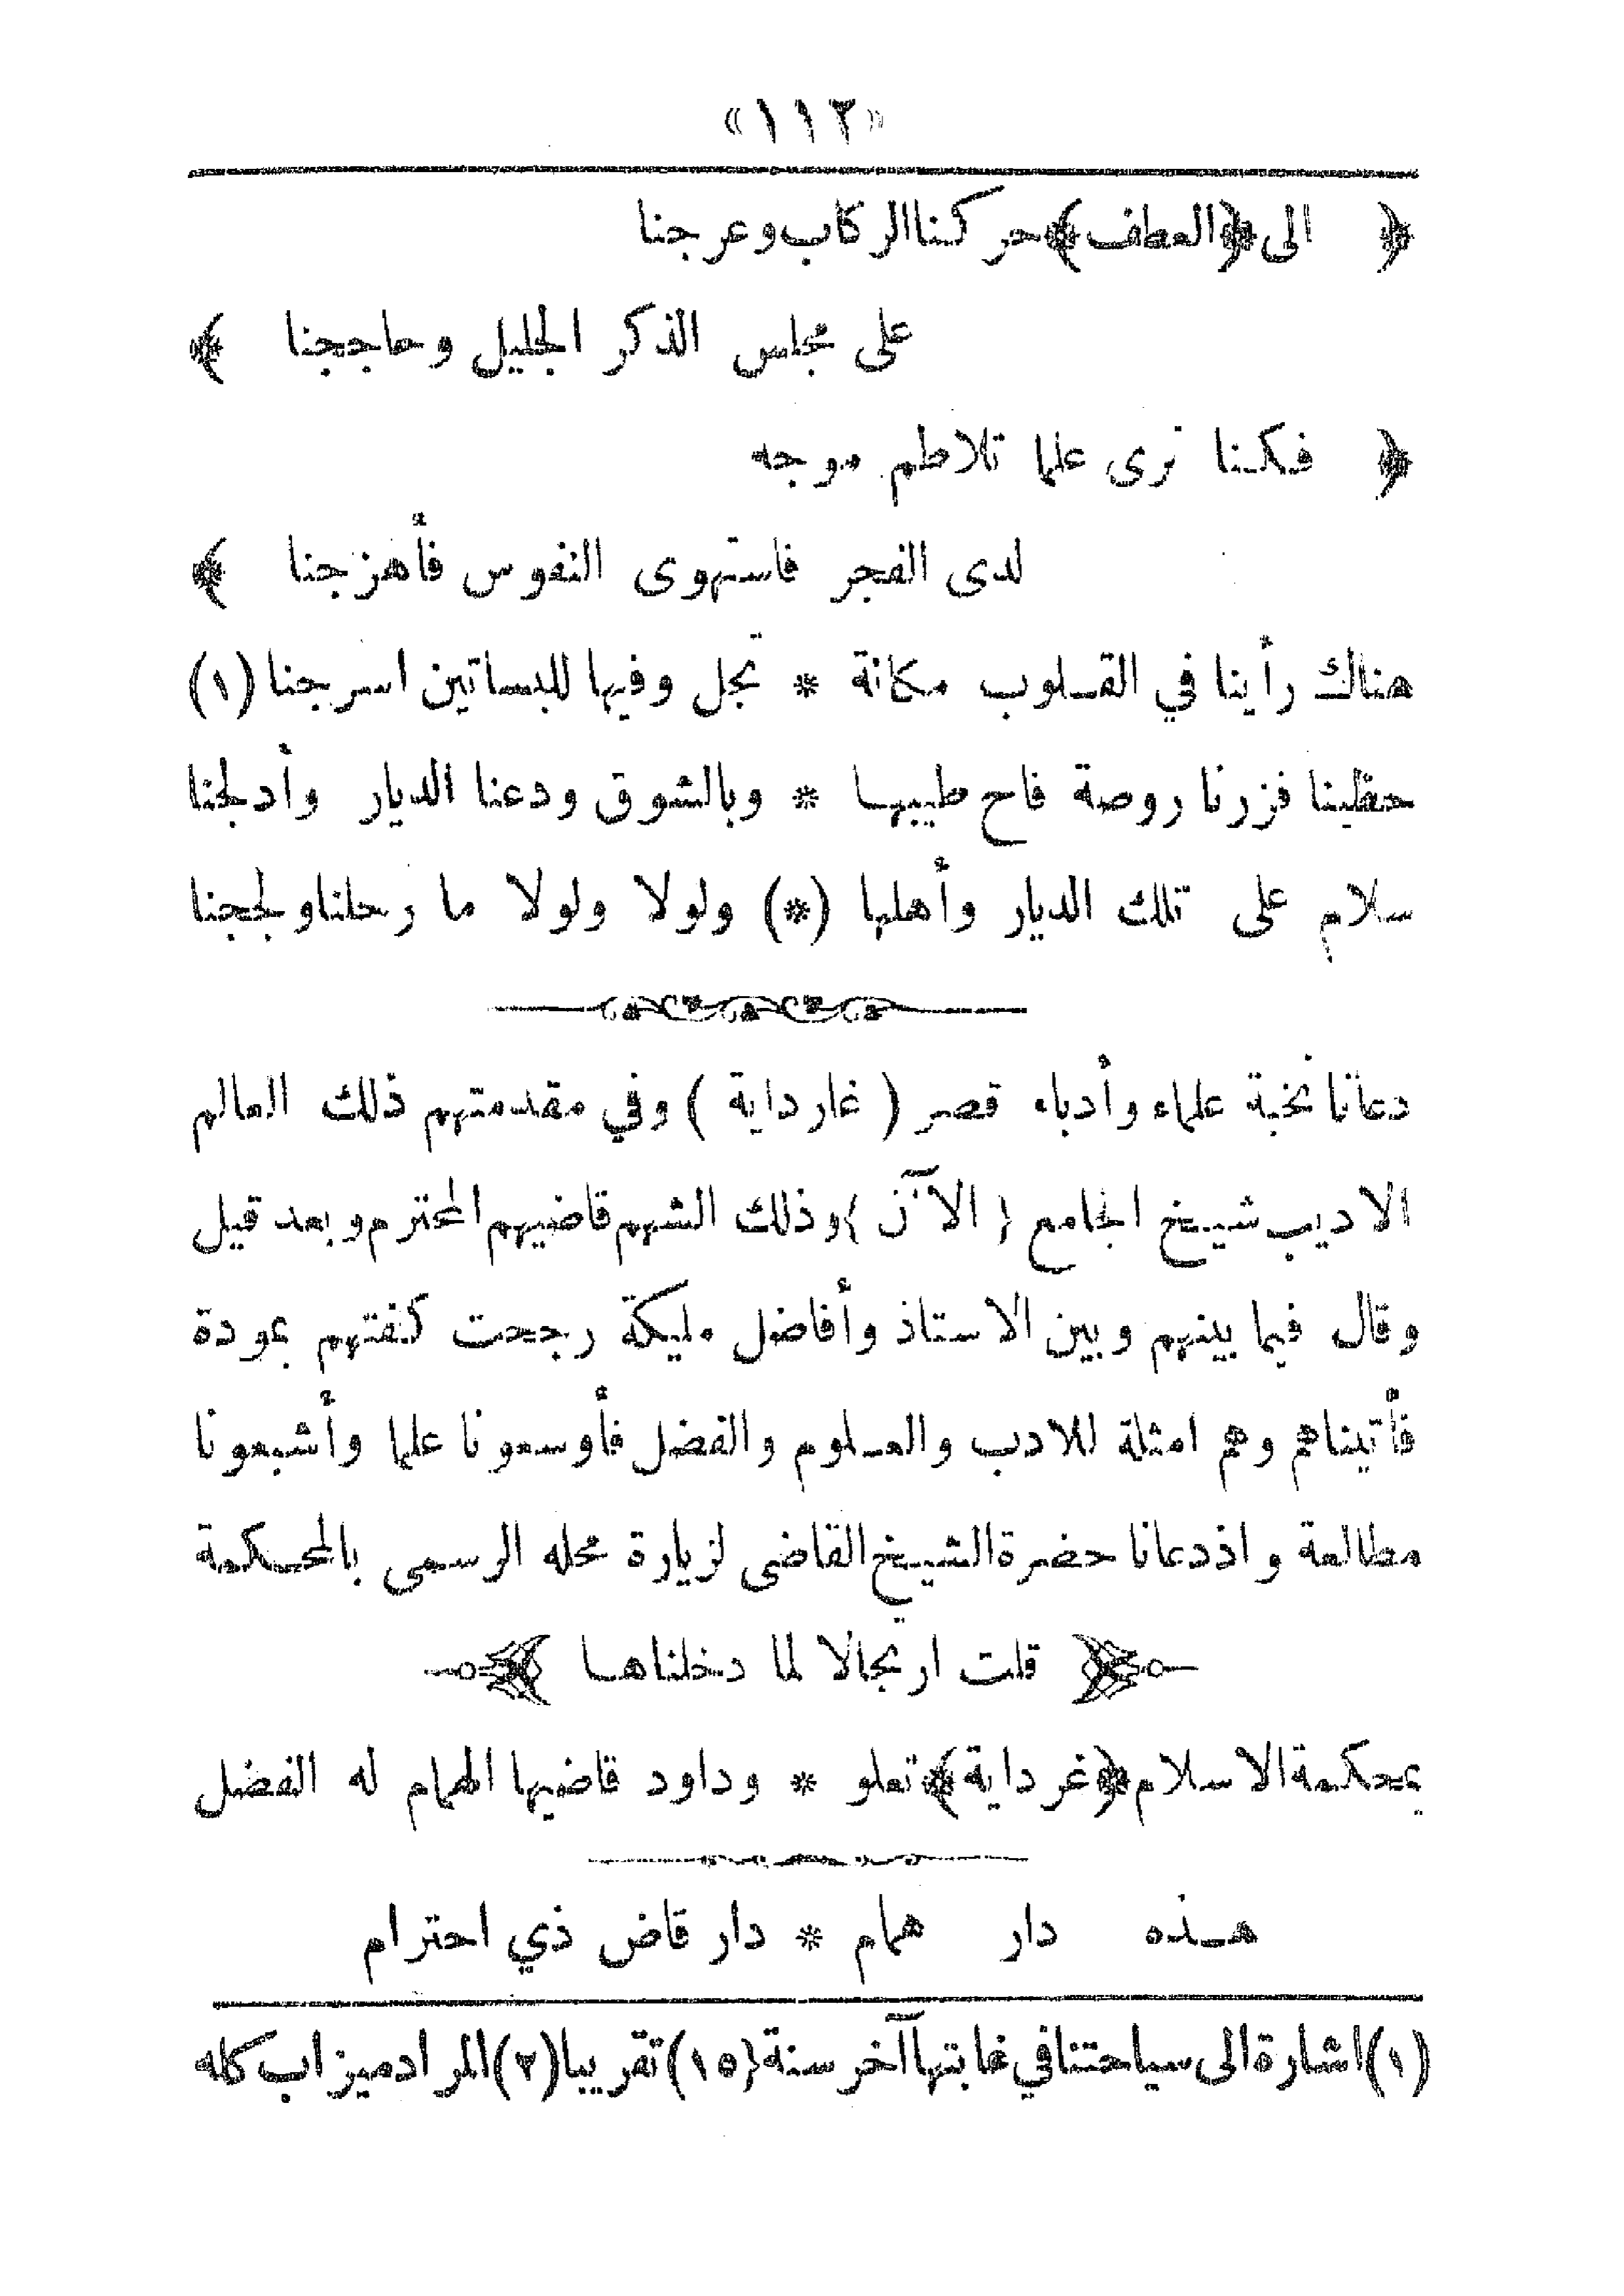 «١١٢»
﴿ الى ﴿العطف﴾ حركنا الركاب وعرجنا
على مجلس الذكر الجليل وحاججنا ﴾
﴿ فكنا نرى علما تلاطم موجه
لدى الفجر فاستهوى النفوس فأهزجنا ﴾
هناك رأينا في القلوب مكانة * تجل وفيها للبساتين اسرجنا (١)
حظينا فزرنا روضة فاح طيبها * وبالشوق ودعنا الديار وأدلجنا
سلام على تلك الديار وأهلها (*) ولولا ولولا ما رحلنا ولججنا
دعانا نخبة علماء وأدباء قصر ( غارداية ) وفي مقدمتهم ذلك العالم
الاديب شيخ الجامع ( الآن ) وذلك الشهم قاضيهم المحترم وبعد قيل
وقال فيما بينهم وبين الاستاذ وأفاضل مليكة رجحت كفتهم بعودة
فأتيناهم وهم امثلة للادب والعلوم والفضل فأوسعونا علما وأشبعونا
مطالعة واذ دعانا حضرة الشيخ القاضي لزيارة محله الرسمي بالمحكمة
﴿ قلت ارتجالا لما دخلناها ﴾
بمحكمة الاسلام ﴿غرداية﴾ تعلو * وداود قاضيها الهمام له الفضل
هذه دار همام * دار قاض ذي احترام
(١) اشارة الى سياحتنا في غابتها آخر سنة (١٥) تقريبا (٢) المراد ميزاب كله